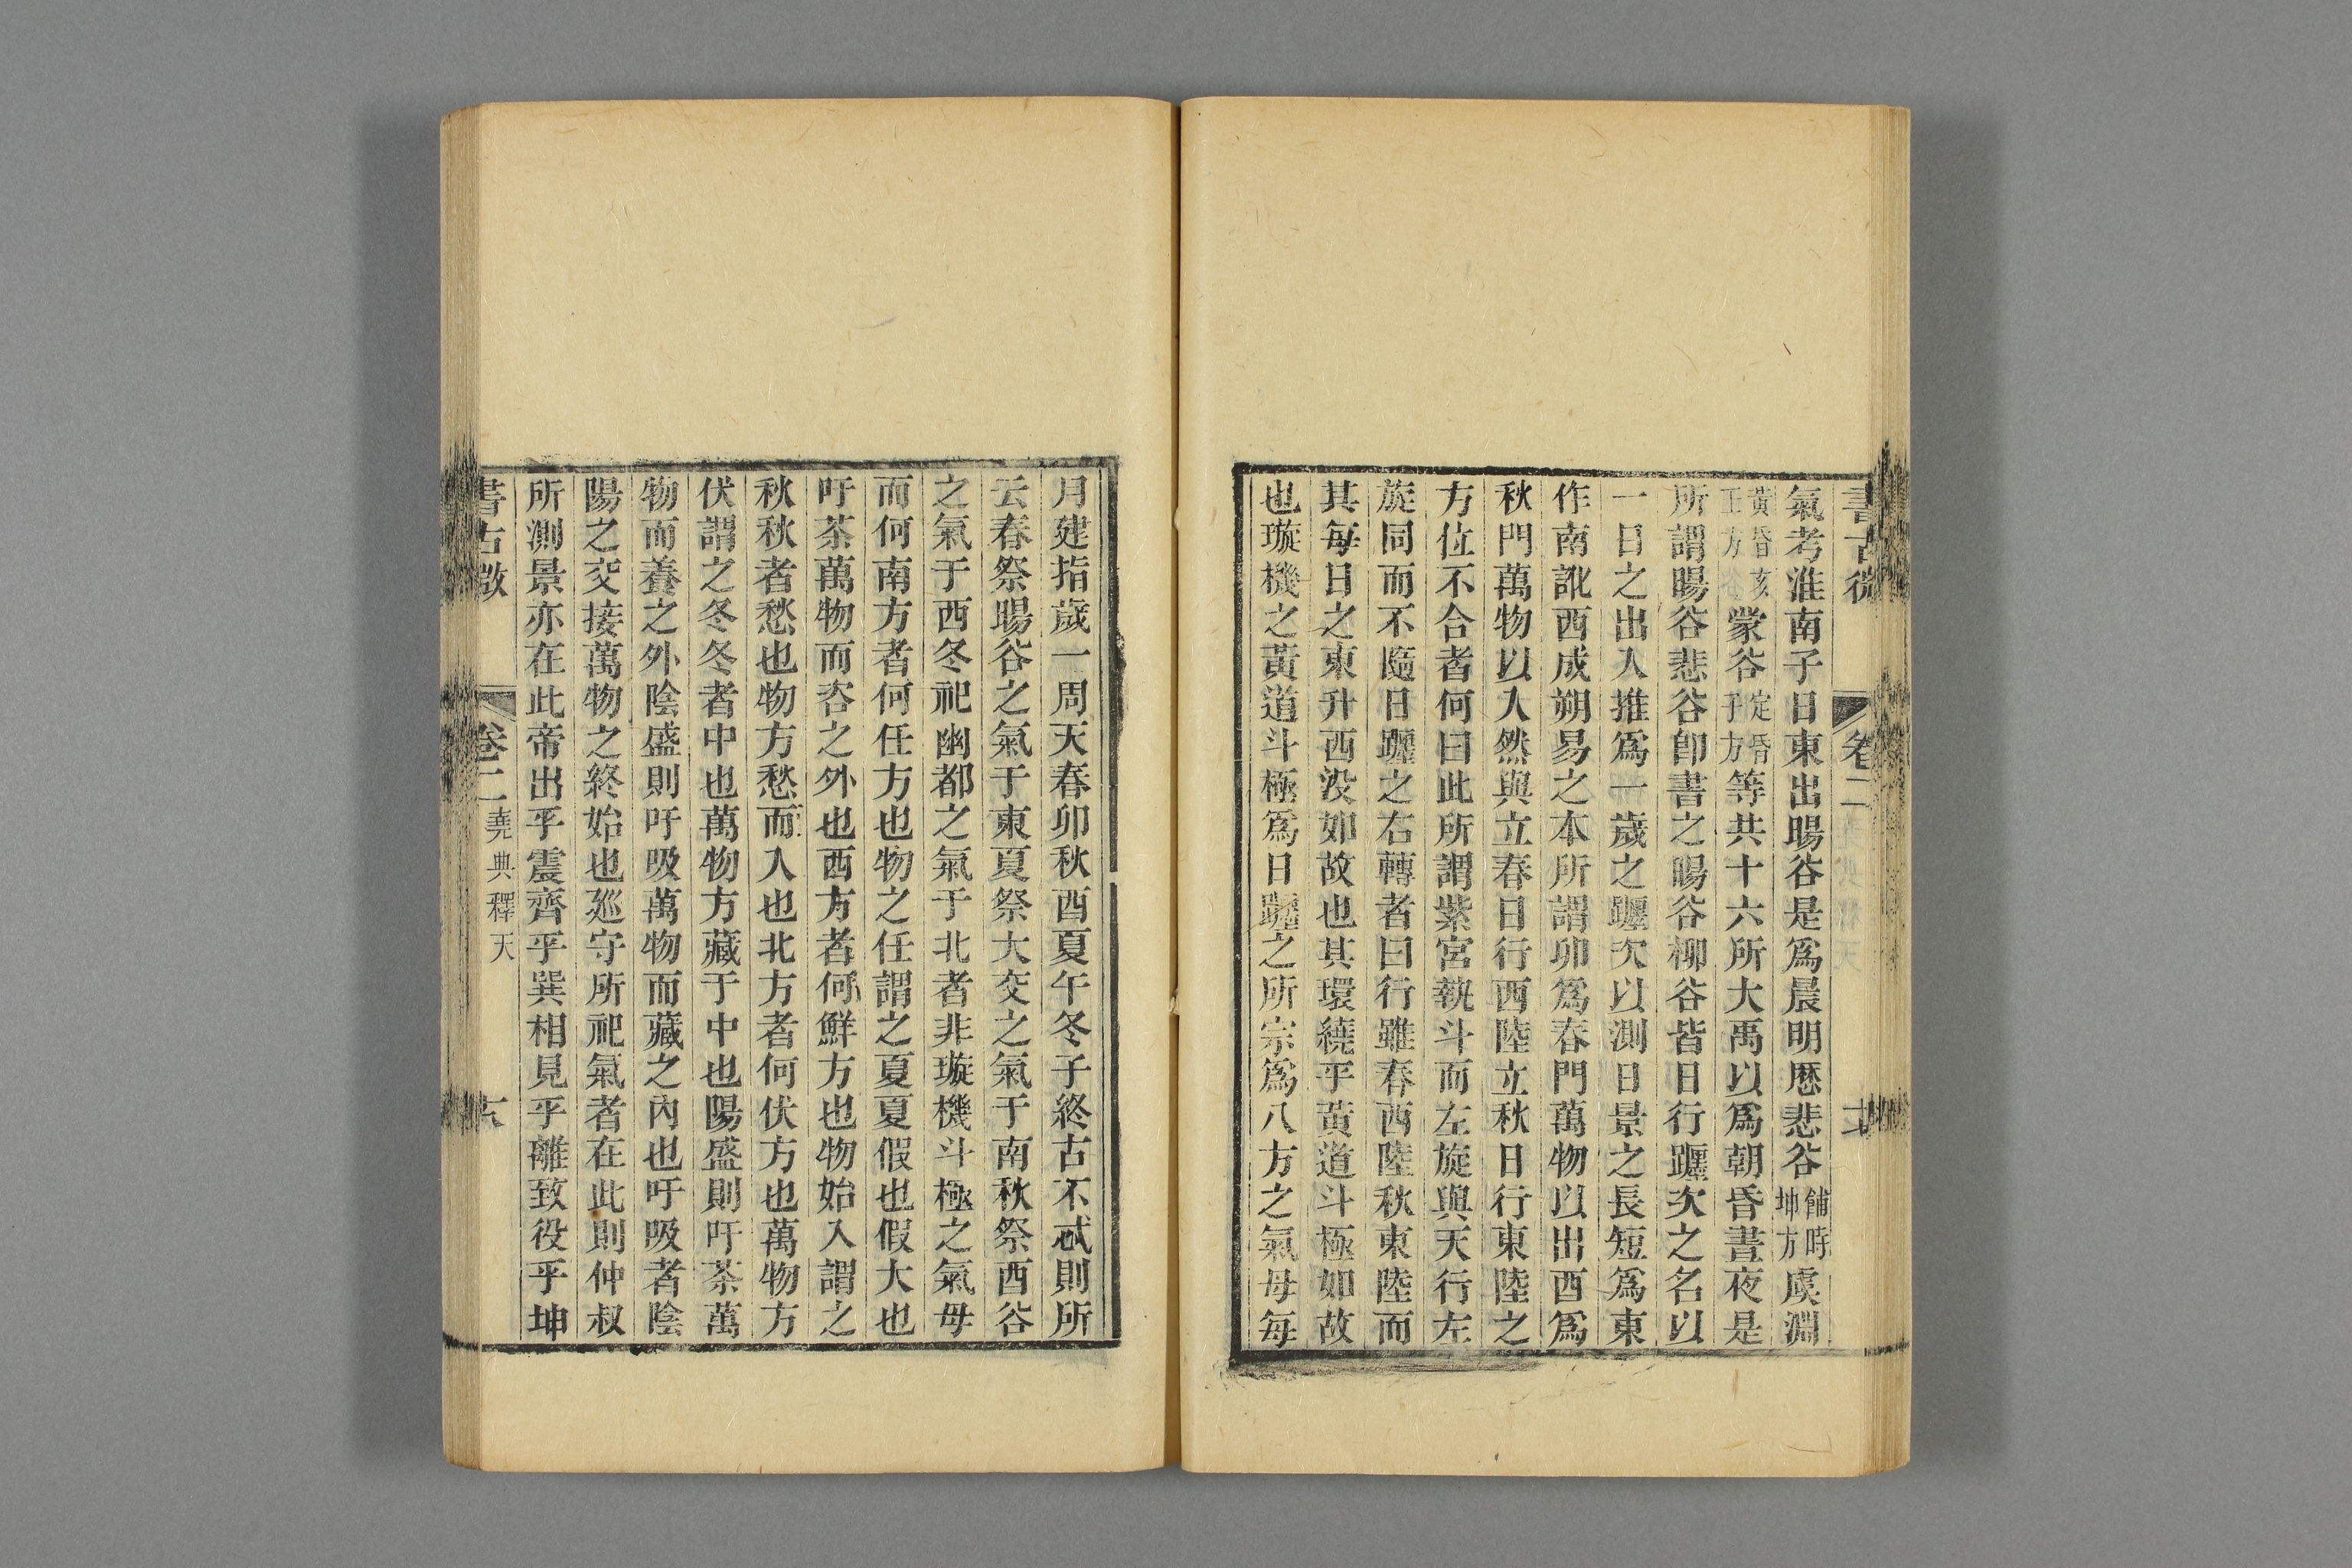 書古微 卷二
氣考淮南子日東出暘谷是爲晨明厯悲谷餔時坤方虞淵
黃昏亥方谷蒙谷定昏子方等共十六所大禹以爲朝昏晝夜是
所謂暘谷悲谷卽書之暘谷柳谷皆日行躔次之名以
一日之出入推爲一歲之躔次以測日景之長短爲東
作南訛西成朔易之本所謂卯爲春門萬物以出酉爲
秋門萬物以入然與立春日行西陸立秋日行東陸之
方位不合者何曰此所謂紫宮執斗而左旋與天行左
旋同而不隨日躔之右轉者曰行雖春西陸秋東陸而
其每日之東升西没如故也其環繞乎黃道斗極如故
也璇機之黃道斗極爲日躔之所宗爲八方之氣母每
月建指歲一周天春卯秋酉夏午冬子終古不忒則所
云春祭暘谷之氣于東夏祭大交之氣于南秋祭西谷
之氣于西冬祀幽都之氣于北者非璇機斗極之氣母
而何南方者何任方也物之任謂之夏夏假也假大也
吁荼萬物而吝之外也西方者何鮮方也物始入謂之
秋秋者愁也物方愁而入也北方者何伏方也萬物方
伏謂之冬冬者中也萬物方藏于中也陽盛則吁荼萬
物而養之外陰盛則吁吸萬物而藏之內也吁吸者陰
陽之交接萬物之終始也廵守所祀氣者在此則仲叔
所測景亦在此帝出乎震齊乎巽相見乎離致役乎坤
書古微 卷二 堯典釋天